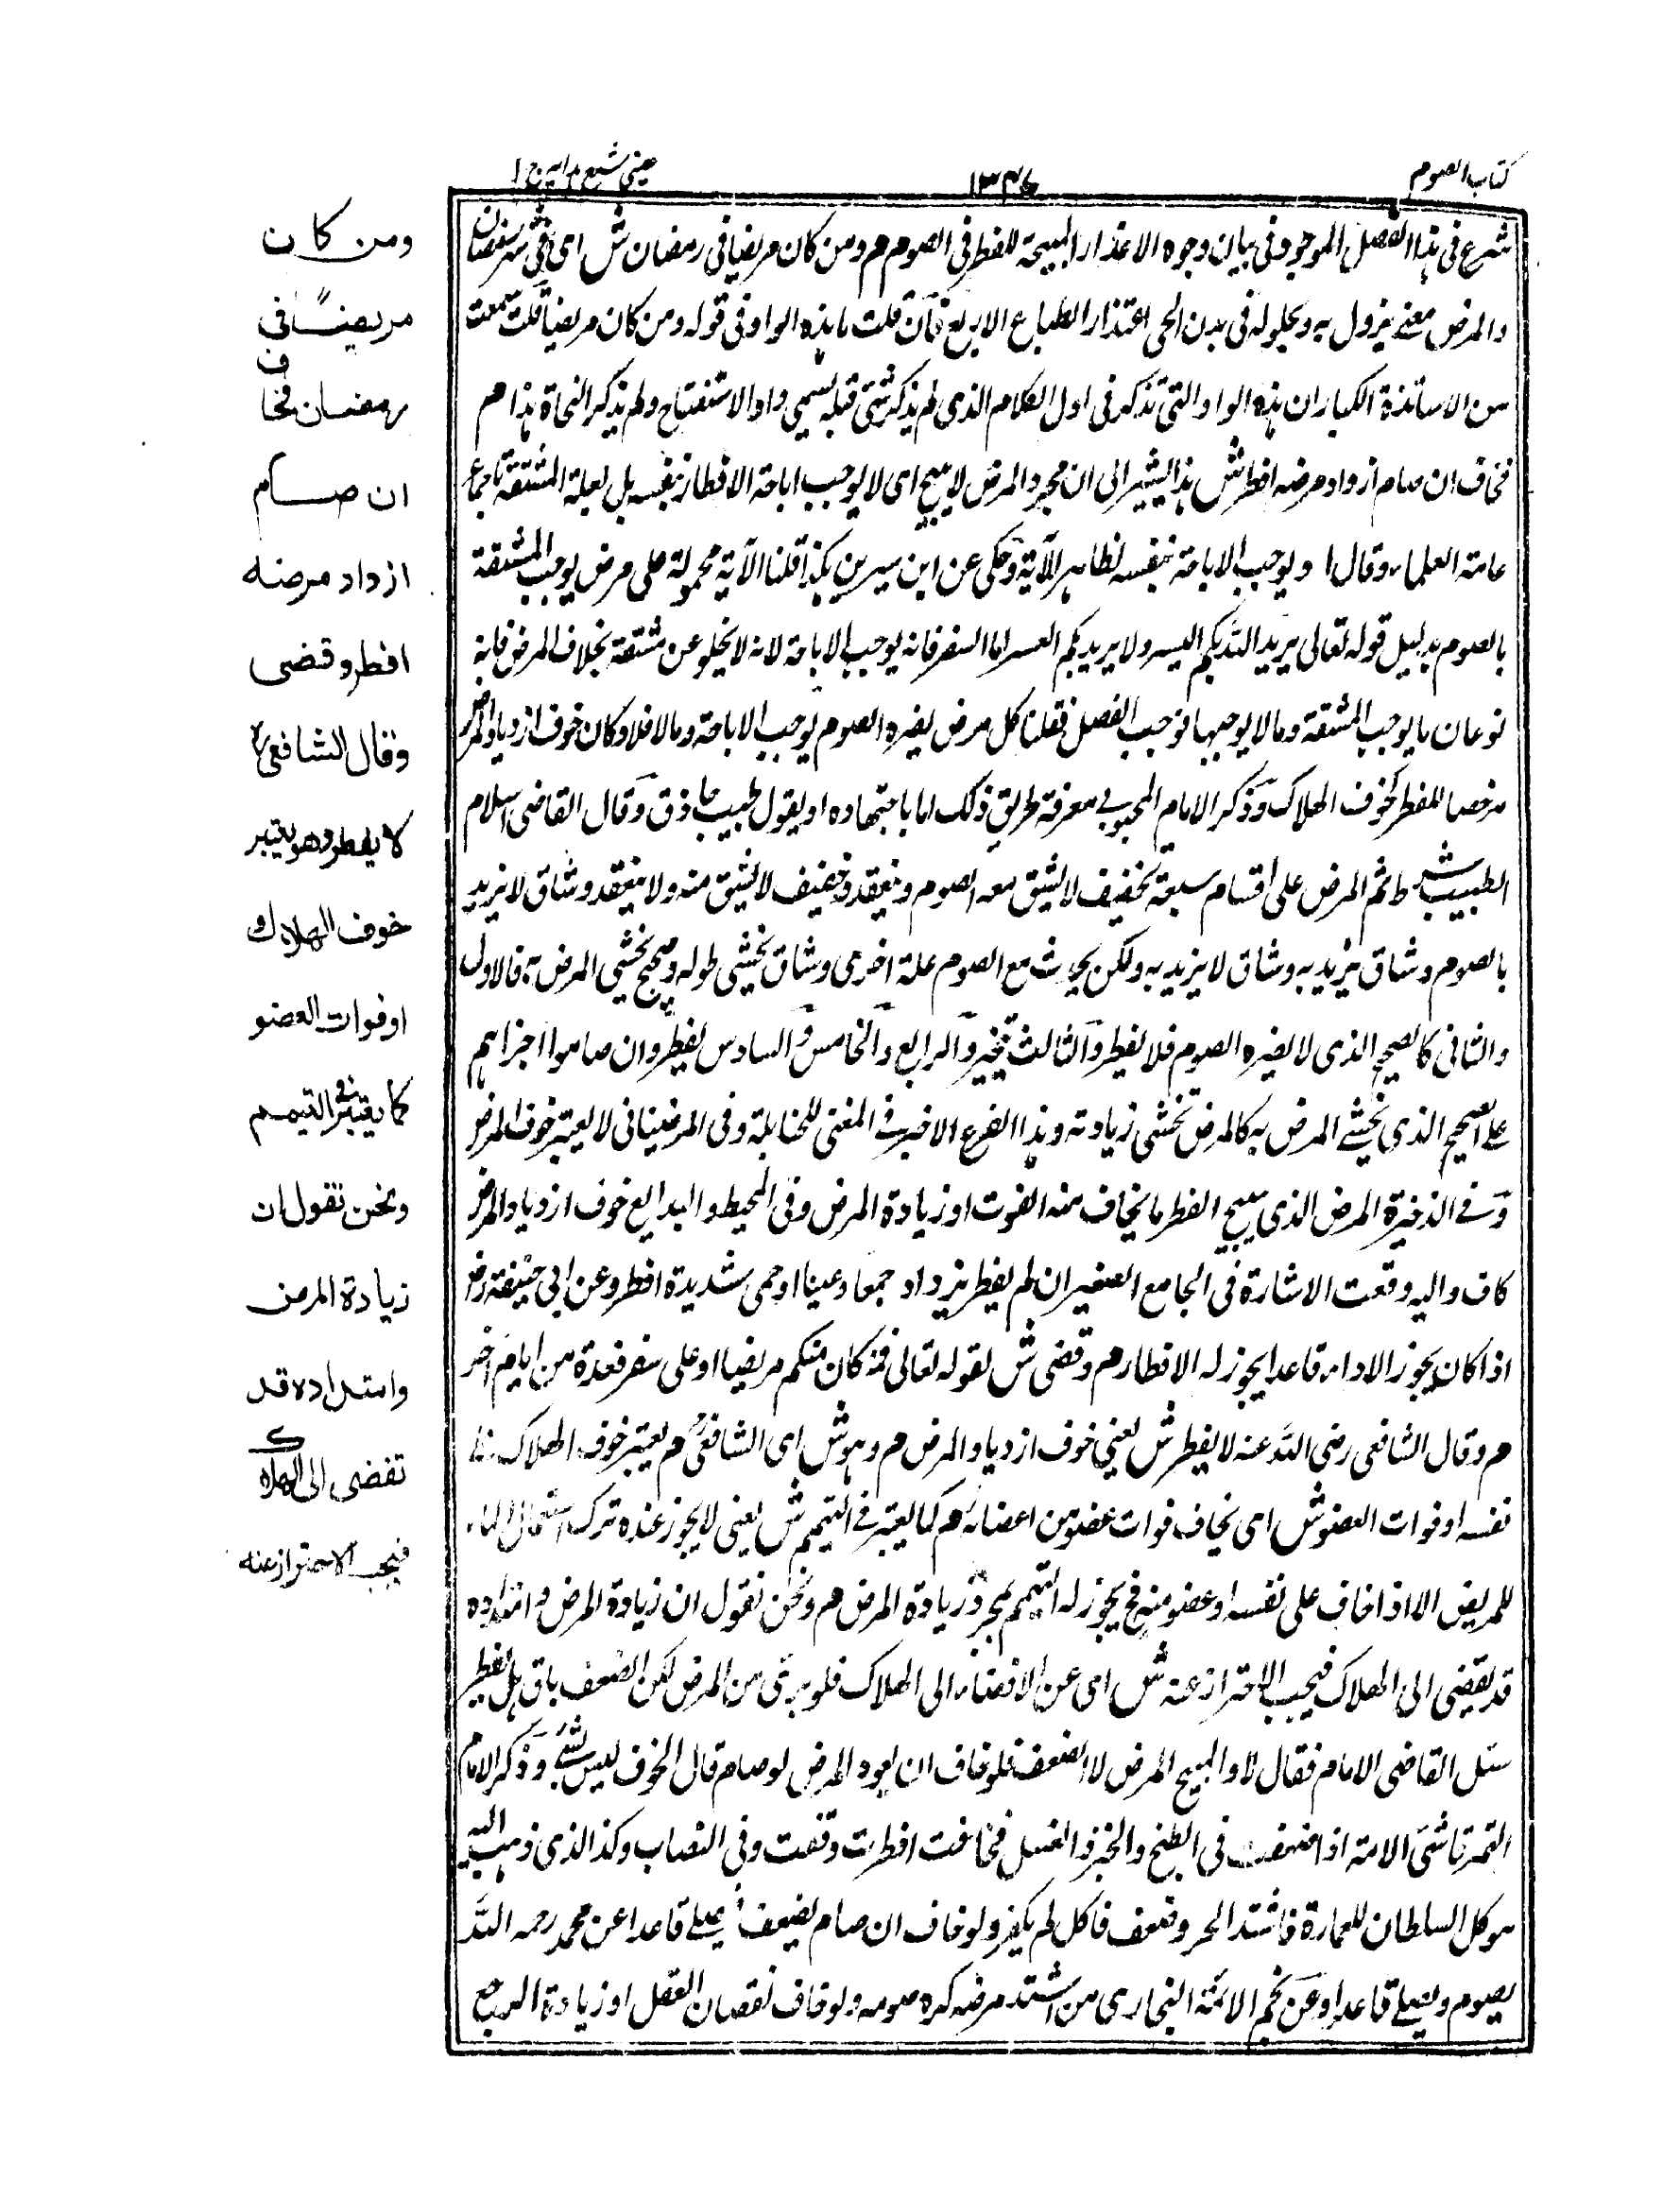 كتاب الصوم
١٣٤٦
عينى شرح هدايه ج ١
شرع فى هذا الفصل الموجود فى بيان وجوه الاعذار المبيحة للفطر فى الصوم م ومن كان مريضا فى رمضان ش اى فى شهر رمضان
والمرض معنى يزول به وبحلوله فى بدن الحى اعتدال الطبائع الاربع فان قلت ما هذه الواو فى قوله ومن كان مريضا قلت سمعت
من الاساتذة الكبار ان هذه الواو التى تذكر فى اول الكلام الذى لم يذكر شئ قبله يسمى واو الاستفتاح ولم يذكر النحاة هذا م
فخاف ان صام ازداد مرضه افطر ش هذا يشير الى ان مجرد المرض لا يبيح اى لا يوجب اباحة الافطار بنفسه بل لعلة المشقة باجماع
عامة العلماء وقال ا ويوجب الاباحة بنفسه لظاهر الآية وحكى عن ابن سيرين هكذا قلنا الآية محمولة على مرض يوجب المشقة
بالصوم بدليل قوله تعالى يريد الله بكم اليسر ولا يريد بكم العسر اما السفر فانه يوجب الاباحة لانه لا يخلو عن مشقة بخلاف المرض فانه
نوعان ما يوجب المشقة وما لا يوجبها فوجب الفصل فقلنا كل مرض يضره الصوم يوجب الاباحة وما لا فلا وكان خوف ازدياد المرض
مرخصا للفطر كخوف الهلاك وذكر الامام المحبوبى معرفة طريق ذلك اما باجتهاده او بقول طبيب حاذق وقال القاضى اسلام
الطبيب شرط ثم المرض على اقسام سبعة خفيف لا يشق معه الصوم وينعقد وخفيف لا يشق منه ولا ينعقد وشاق لا يزيد
بالصوم وشاق يزيد به وشاق لا يزيد به ولكن يحدث مع الصوم علة اخرى وشاق يخشى طوله وصحيح يخشى المرض به فالاول
والثانى كالصحيح الذى لا يضره الصوم فلا يفطر والثالث يخير والرابع والخامس والسادس يفطر وان صاموا اجزاهم
على الصحيح الذى يخشى المرض به كالمرض يخشى زيادته وهذا الفرع الاخير فى المغنى للحنابلة وفى المرغينانى لا يعتبر خوف المرض
وفى الذخيرة المرض الذى يبيح الفطر ما يخاف منه الفوت او زيادة المرض وفى المحيط والبدايع خوف ازدياد المرض
كاف واليه وقعت الاشارة فى الجامع الصغير ان لم يفطر يزداد وجعا وعينا او حمى شديدة افطر وعن ابى حنيفة رض
اذا كان يجوز الاداء قاعدا يجوز له الافطار م وقضى ش لقوله تعالى فمن كان منكم مريضا او على سفر فعدة من ايام اخر
م وقال الشافعى رضى الله عنه لا يفطر ش يعنى خوف ازدياد المرض م وهو ش اى الشافعى م يعتبر خوف الهلاك على
نفسه او فوات العضو ش اى يخاف فوات عضو من اعضائه م كما يعتبر فى التيمم ش يعنى لا يجوز عنده ترك استعمال الماء
للمريض الا اذا خاف على نفسه او عضو منه فح يجوز له التيمم بمجرد زيادة المرض م ونحن نقول ان زيادة المرض وامتداده
قد يفضى الى الهلاك فيجب الاحتراز عنه ش اى عن الافضاء الى الهلاك فلو برئ من المرض لكن الضعف باق هل يفطر
سئل القاضى الامام فقال لا والمبيح المرض لا الضعف فلو خاف ان يعود المرض لو صام قال الخوف ليس بشئ وذكر الامام
التمرتاشى الامة اذا ضعفت فى الطبخ والخبز والغسل فخافت افطرت وقضت وفى النصاب وكذا الذى ذهب اليه
موكل السلطان للعمارة فاشتد الحر وضعف فاكل لم يكفر ولو خاف ان صام يضعف يصلى قاعدا عن محمد رحمه الله
يصوم ويصلى قاعدا وعن نجم الائمة البخارى من اشتد مرضه كره صومه ولو خاف نقصان العقل او زيادة الوجع
ومن كان
مريضًا فى
رمضان فخاف
ان صام
ازداد مرضه
افطر وقضى
وقال الشافعى رح
لا يفطر وهو يعتبر
خوف الهلاك
او فوات العضو
كما يعتبر فى التيمم
ونحن نقول ان
زيادة المرض
وامتداده قد
تفضى الى الهلاك
فيجب الاحتراز عنه